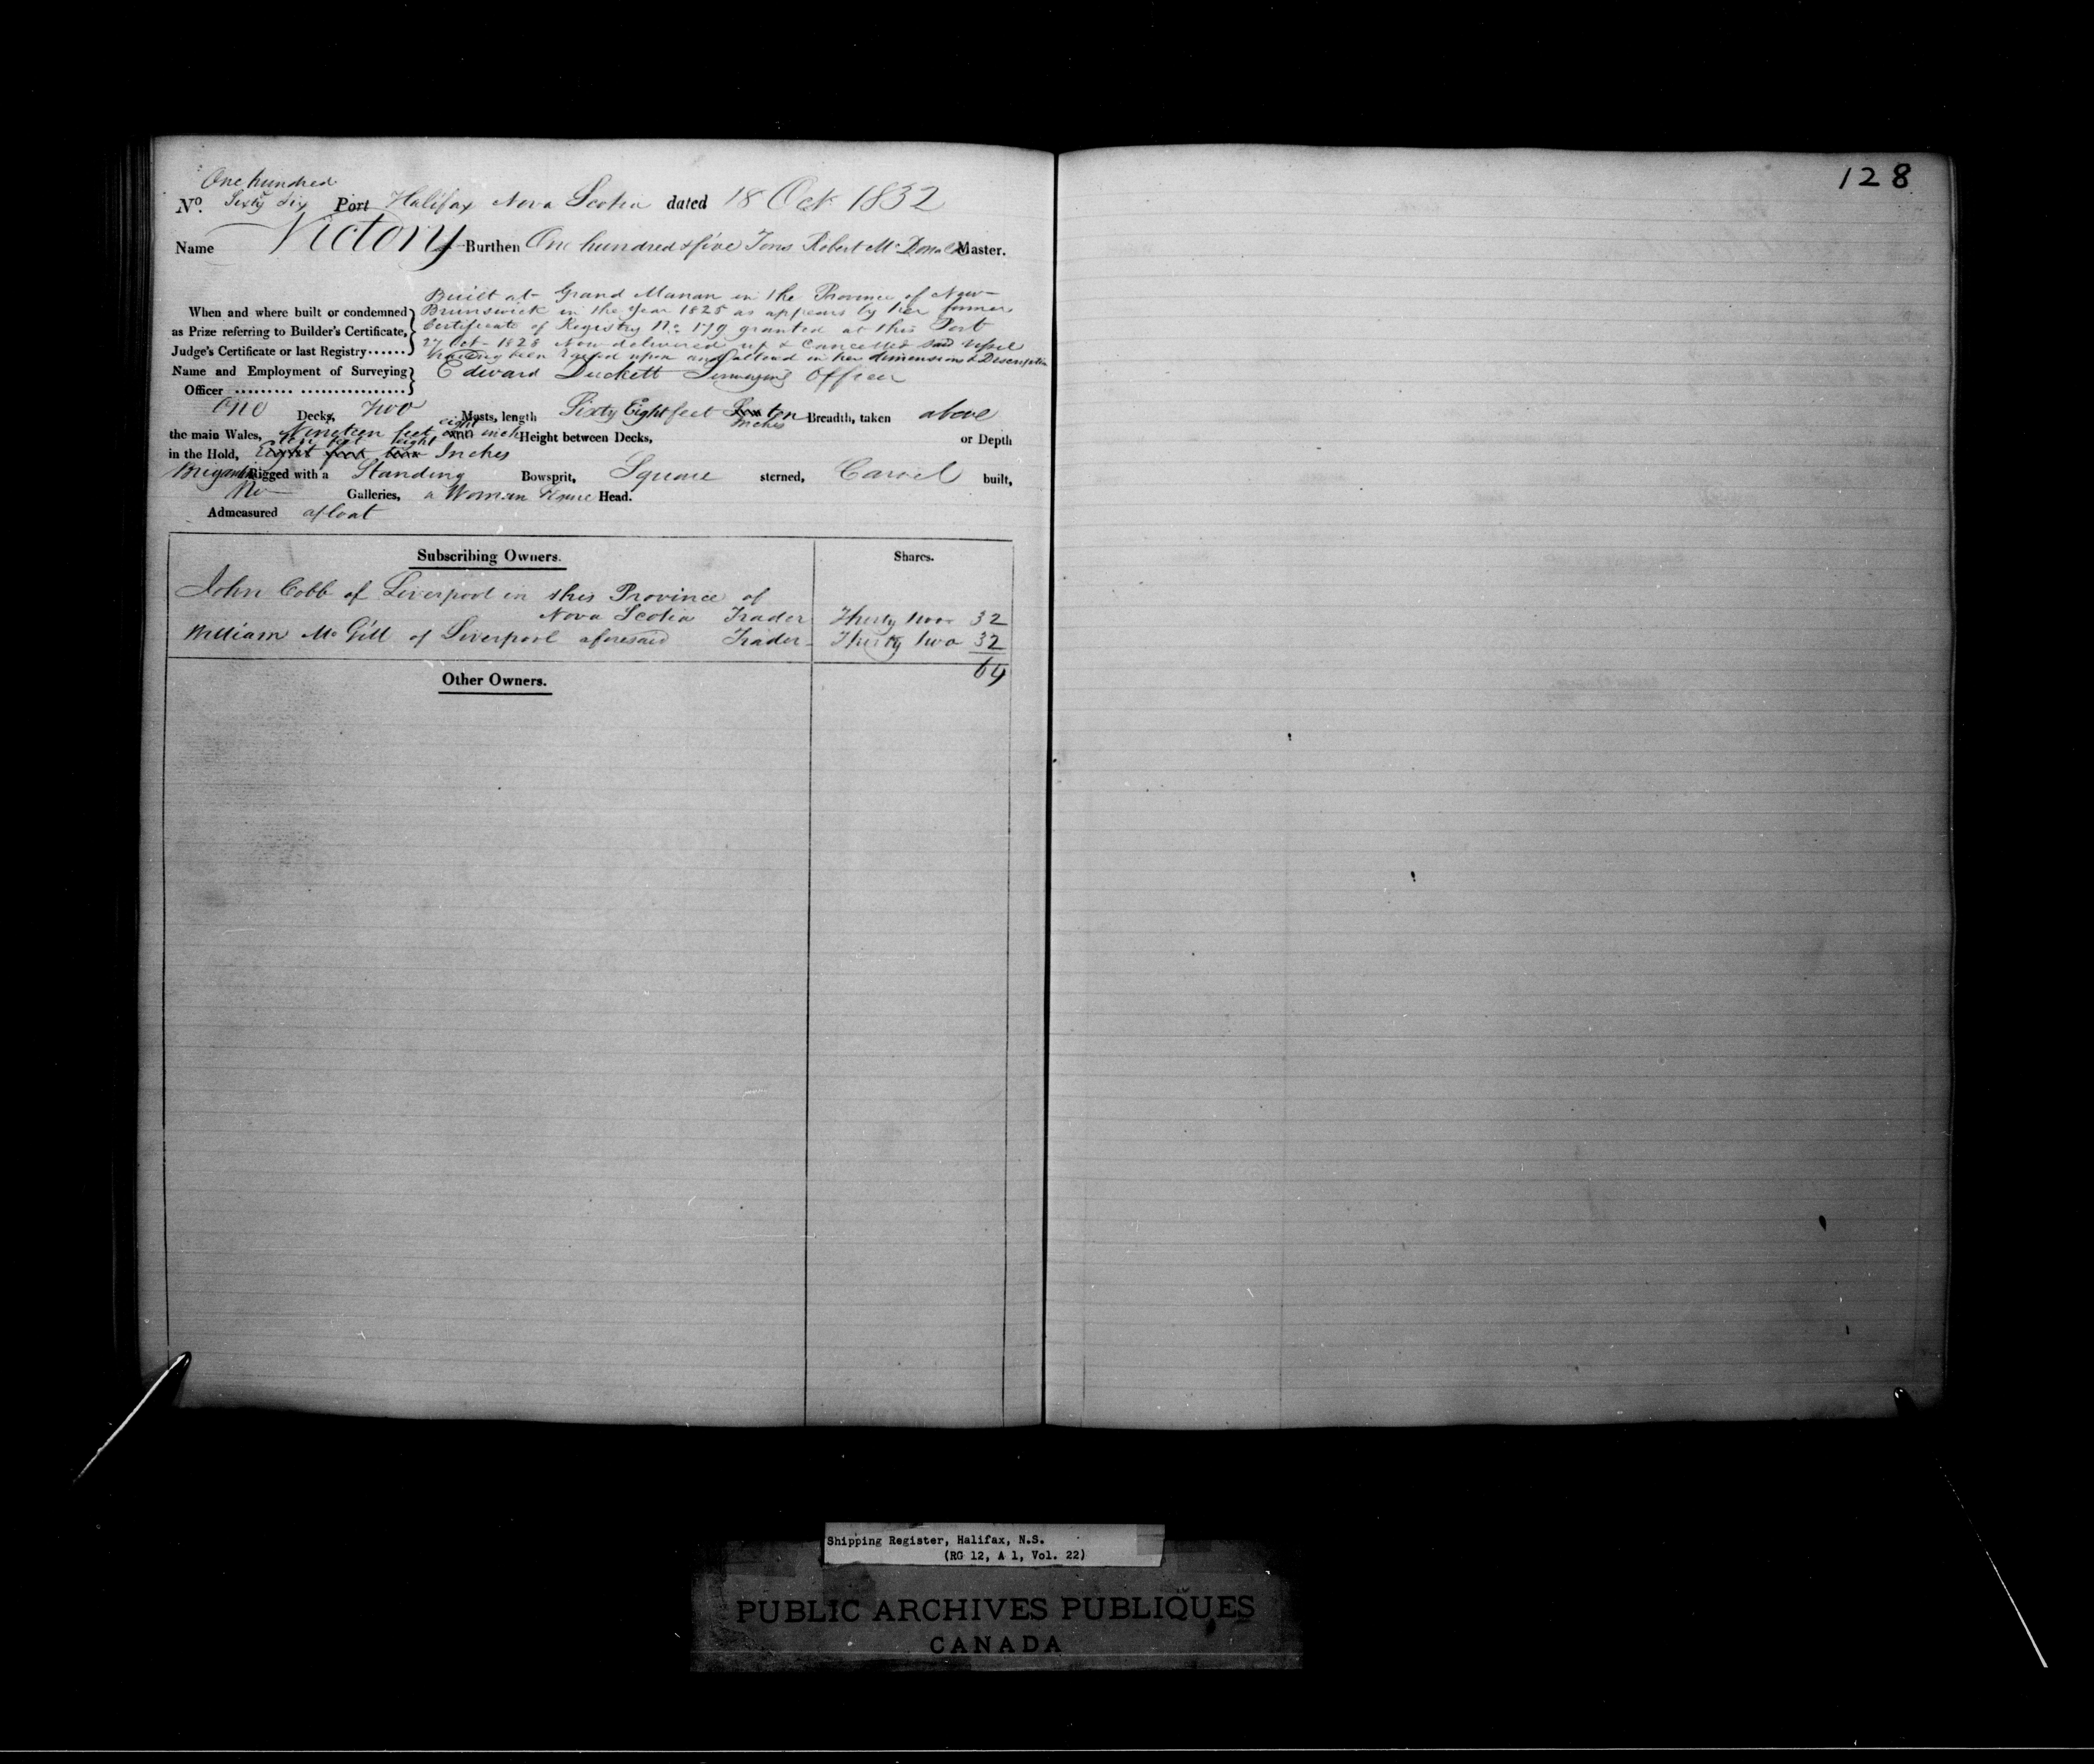 One hundred
No. Sixty Six Port Halifax Nova Scotia dated 18 Oct 1832
Name Victory Burthen One hundred & five Tons Robert Mc Donald Master.
Built at Grand Manan in the Province of New
When and where built or condemned Brunswick in the Year 1825 as appears by her former
as Prize referring to Builder's Certificate, Certificate of Registry No. 179 granted at this Port
Judge's Certificate or last Registry...... 27 Oct 1828 Now delivered up & Cancelled said Vessel
having been raised upon and altered in her dimensions & Description
Name and Employment of Surveying Edward Duckett Surveying Officer
Officer
One Decks, Two Masts, length Sixty Eight feet ten Inches Breadth, taken above
the main Wales, Nineteen feet eight inch Height between Decks, or Depth
in the Hold, Ten feet eight Inches
Brigantine Rigged with a Standing Bowsprit, Square sterned, Carvel built,
No Galleries, a Woman Head.
Admeasured afloat
Subscribing Owners. Shares.
John Cobb of Liverpool in this Province of
Nova Scotia Trader Thirty two 32
William Mc Gill of Liverpool aforesaid Trader Thirty two 32
64
Other Owners.
128
Shipping Register, Halifax, N.S.
(RG 12, A 1, Vol. 22)
PUBLIC ARCHIVES PUBLIQUES
CANADA